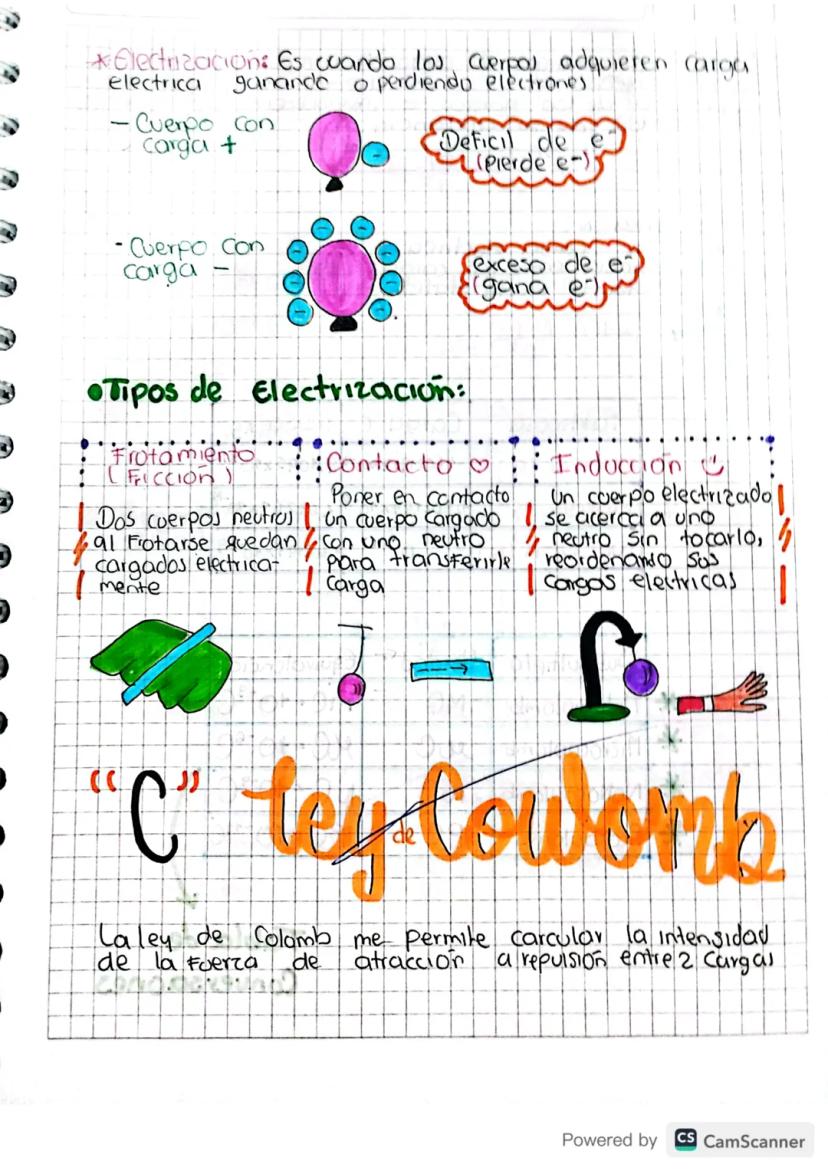 *Electrización: Es cuando los cuerpos adquieren carga
electrica ganando o perdiendo electrones
- Cuerpo con
carga +
Deficil de e-
(pierde e-)
- Cuerpo con
carga -
exceso de e-
(gana e-)
•Tipos de Electrización:
Frotamiento
(Fricción)
Dos cuerpos neutros
al Frotarse quedan
cargados electrica-
mente
Contacto ♡
Poner en contacto
un cuerpo cargado
con uno neutro
para transferirle
carga
Inducción
un cuerpo electrizado
se acerca a uno
neutro sin tocarlo,
reordenando sus
cargas electricas
"C" Ley de Coulomb
La ley de Colomb me permite carcular la intensidad
de la Fuerza de atracción a repulsión entre 2 cargas
Conversiones
Powered by CS CamScanner